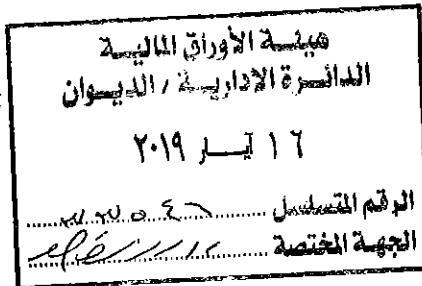 هيئة الأوراق المالية
الدائرة الإدارية / الديوان
١٦ أيار ٢٠١٩
الرقم المتسلسل
الجهة المختصة